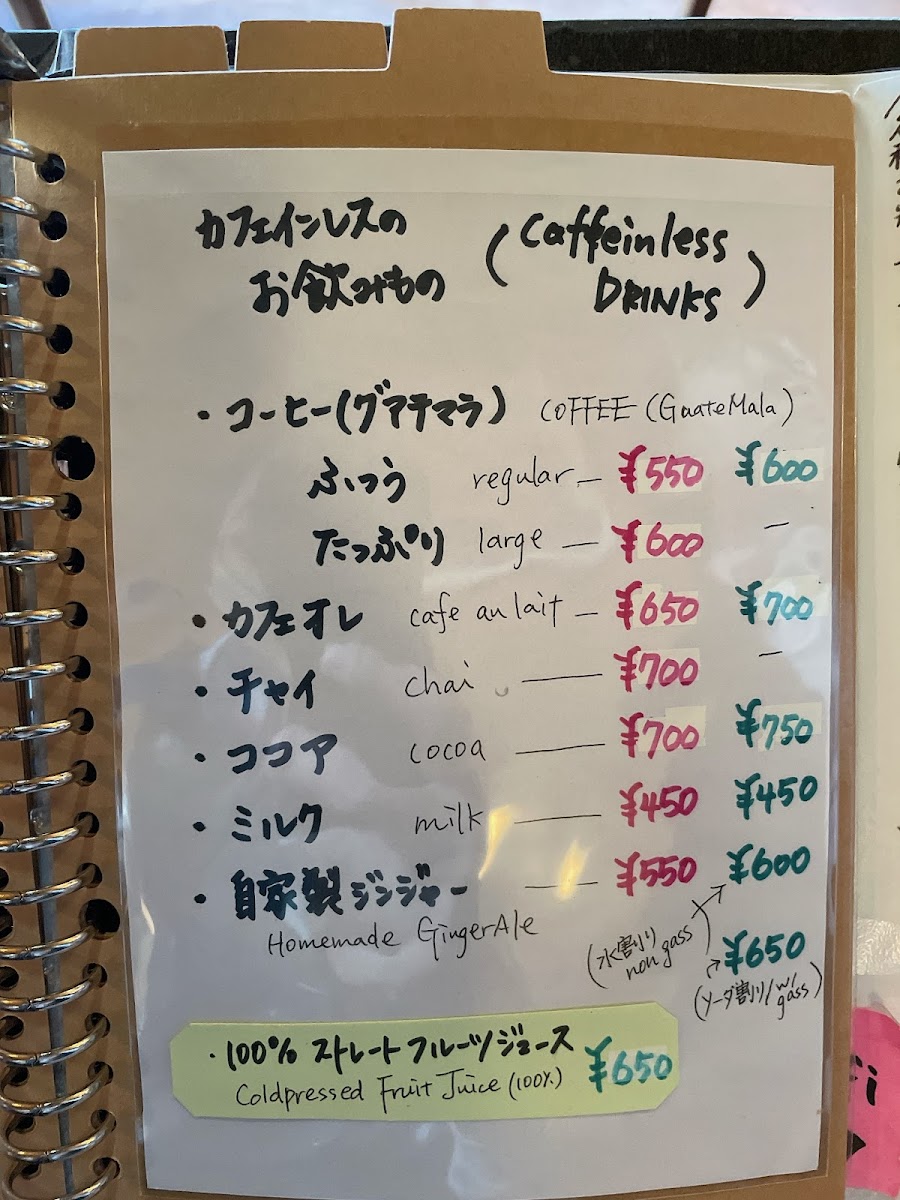 カフェインレスの
お飲みもの
(Caffeinless
DRINKS)
・コーヒー(グアテマラ) COFFEE (GuateMala)
ふつう regular — ¥550 ¥600
たっぷり large — ¥600 —
・カフェオレ cafe au lait — ¥650 ¥700
・チャイ chai — ¥700 —
・ココア cocoa — ¥700 ¥750
・ミルク milk — ¥450 ¥450
・自家製ジンジャー — ¥550 ¥600
Homemade GingerAle
(水割り
non gass)
¥650
(ソーダ割り/w/
gass)
・100% ストレートフルーツジュース ¥650
Coldpressed Fruit Juice (100%)